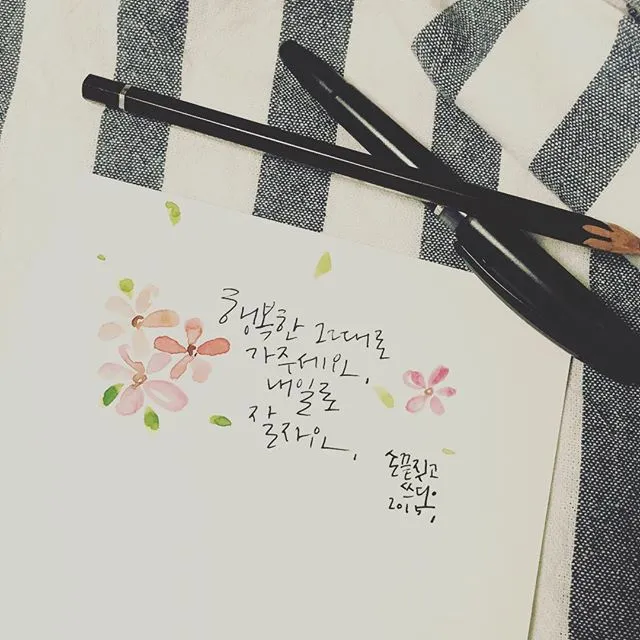 행복한 그대로
가주세요,
내일로
잘자요,
손끝짓고
쓰담
2015